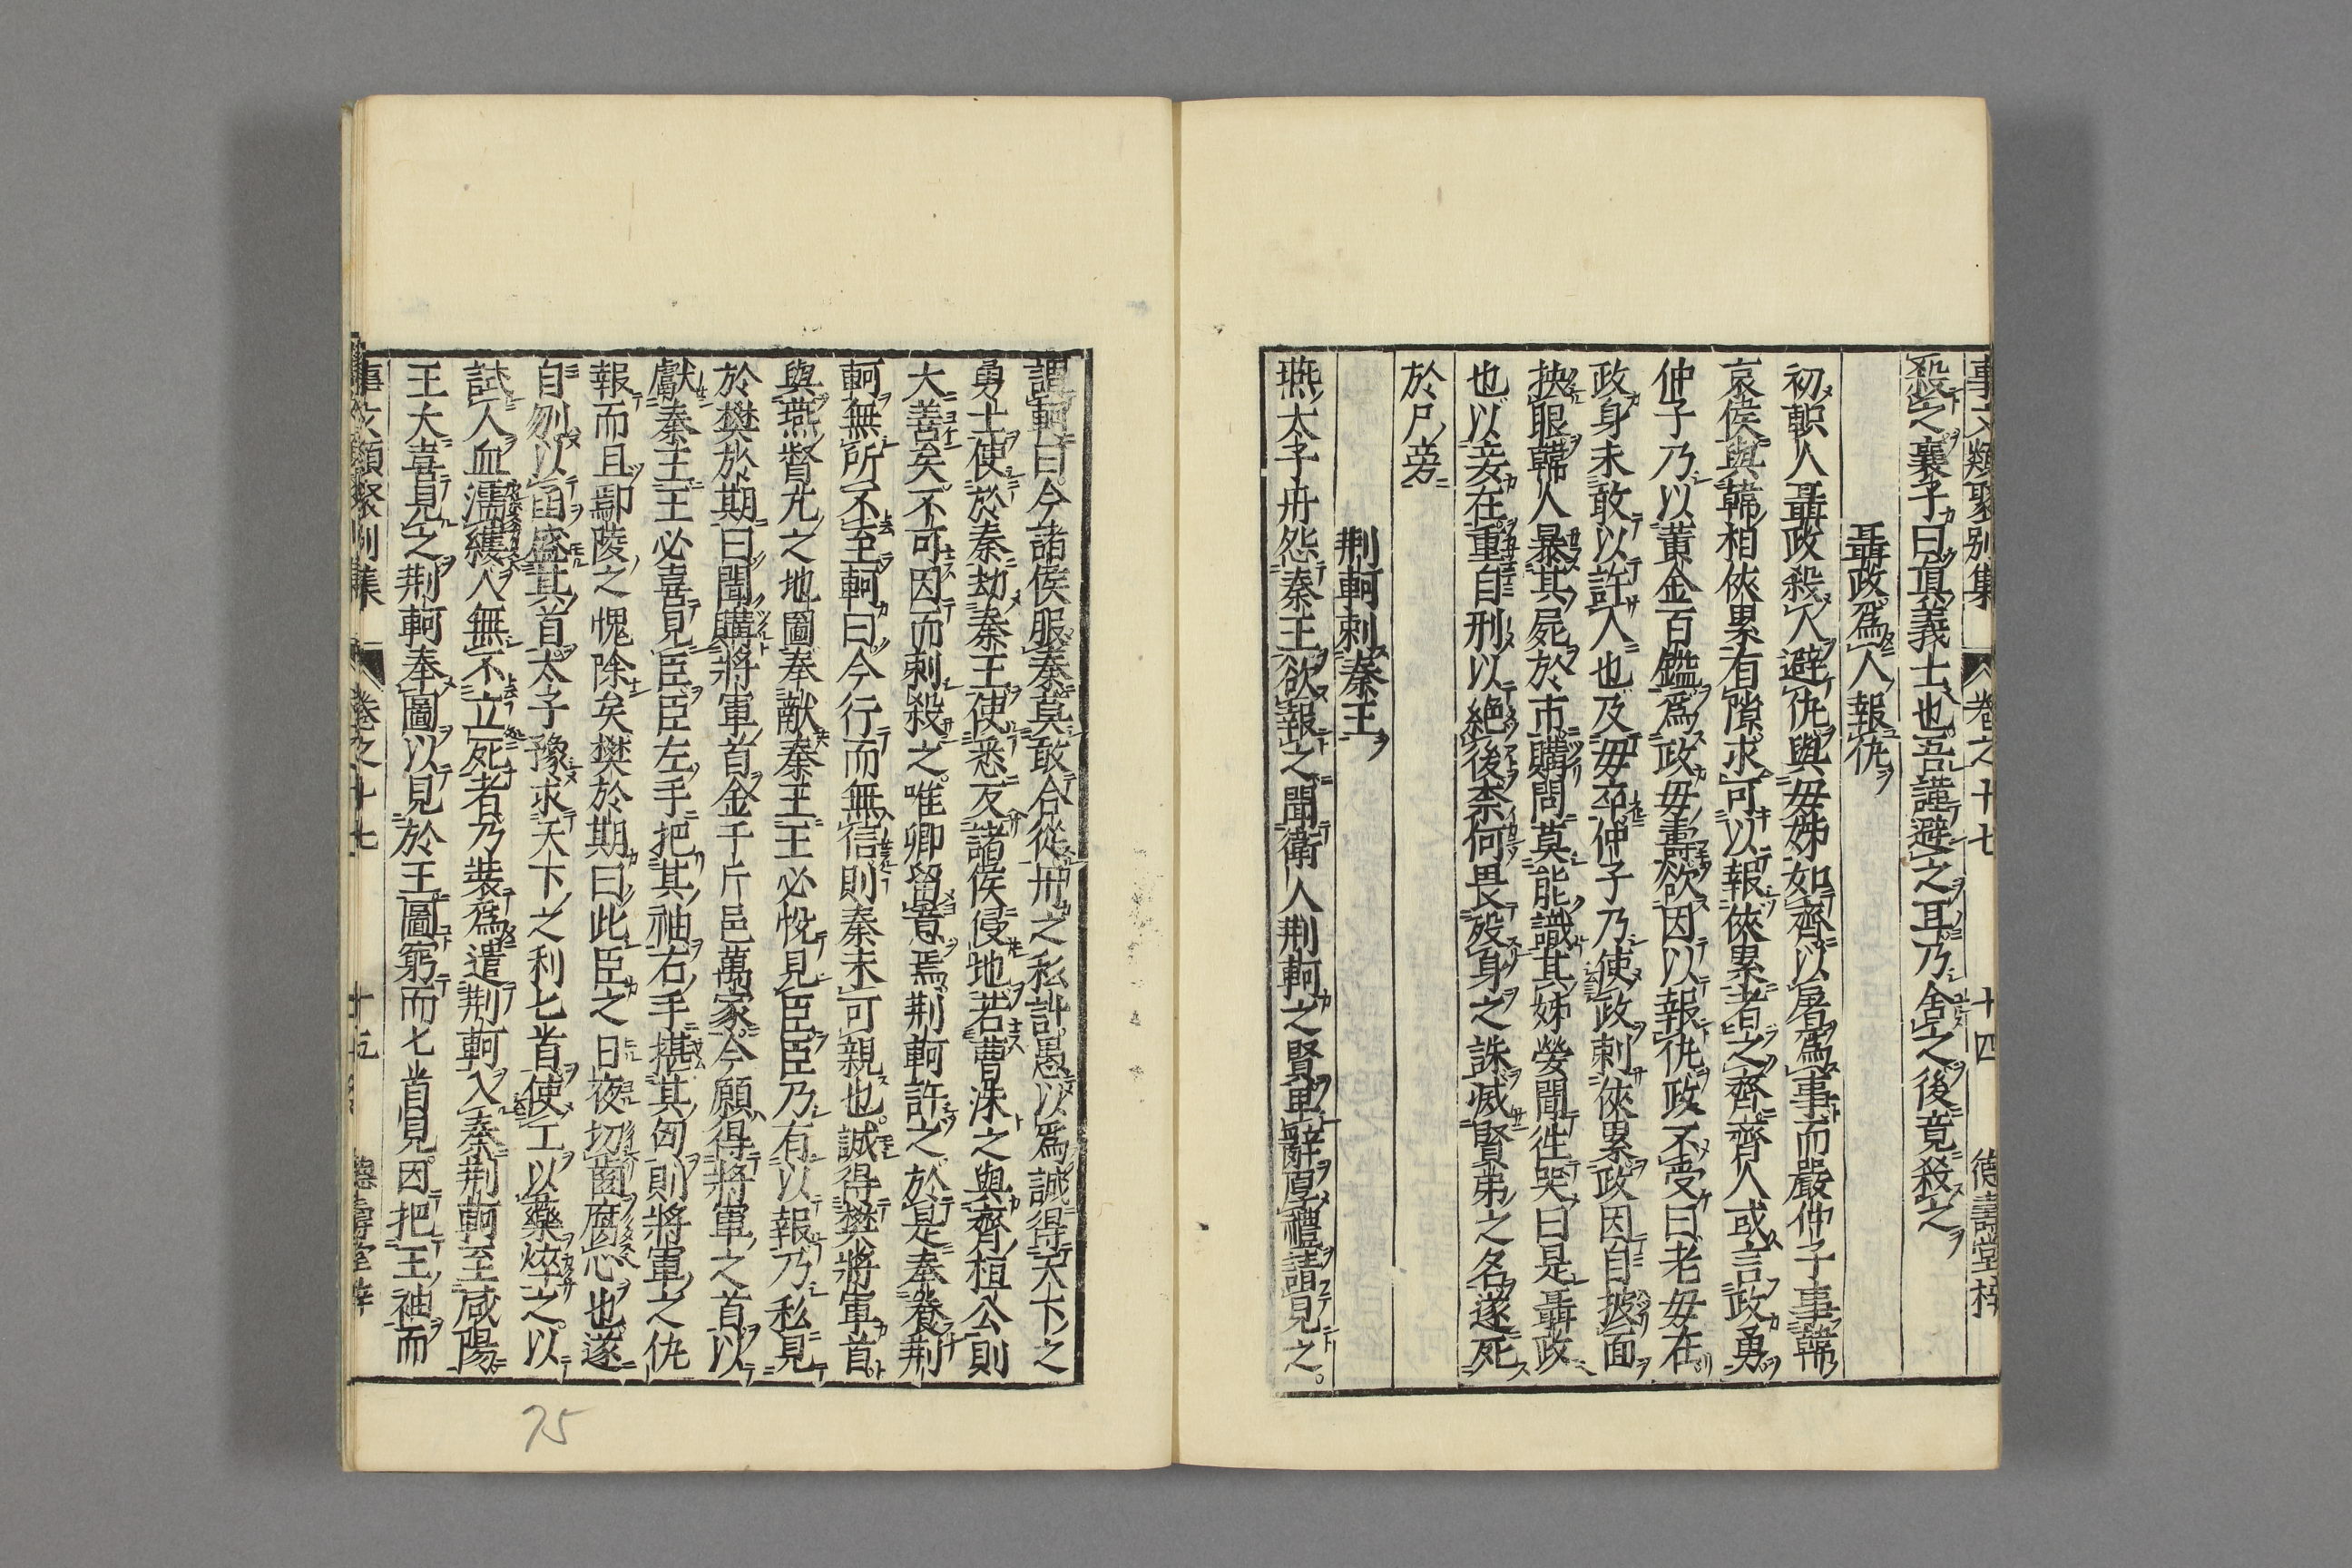 事文類聚別集 卷之十七 十四 德壽堂梓
殺之襄子曰真義士也吾謹避之耳乃舍之後竟殺之
聶政爲人報仇
初軹人聶政殺人避仇與毋姊如齊以屠爲事而嚴仲子事韓
哀侯與韓相俠累有隙求可以報俠累者之齊齊人或言政勇
仲子乃以黃金百鎰爲政毋壽欲因以報仇政不受曰老毋在
政身未敢以許人也及毋卒仲子乃使政刺俠累政因自披面
抉眼韓人暴其屍於市購問莫能識其姊嫈聞徃哭曰是聶政
也以妾在重自刑以絶後柰何畏歿身之誅滅賢弟之名遂死
於尸旁
荆軻刺秦王
燕太子丹怨秦王欲報之聞衛人荆軻之賢卑辭厚禮請見之
謂軻曰今諸侯服秦莫敢合從丹之私計愚以爲誠得天下之
勇士使於秦劫秦王使悉反諸侯侵地若曹沬之與齊桓公則
大善矣不可因而刺殺之唯卿留意焉荆軻許之於是奉養荆
軻無所不至軻曰今行而無信則秦未可親也誠得樊將軍首
與燕督亢之地圖奉献秦王王必悅見臣臣乃有以報乃私見
於樊於期曰聞購將軍首金千斤邑萬家今願得將軍之首以
獻秦王王必喜見臣臣左手把其袖右手揕其匈則將軍之仇
報而且鄢陵之愧除矣樊於期曰此臣之日夜切齒腐心也遂
自刎以函盛其首太子豫求天下之利匕首使工以藥焠之以
試人血濡縷人無不立死者乃裝爲遣荆軻入秦荆軻至咸陽
王大喜見之荆軻奉圖以見於王圖窮而匕首見因把王袖而
事文類聚別集 卷之十七 十五 德壽堂梓
75